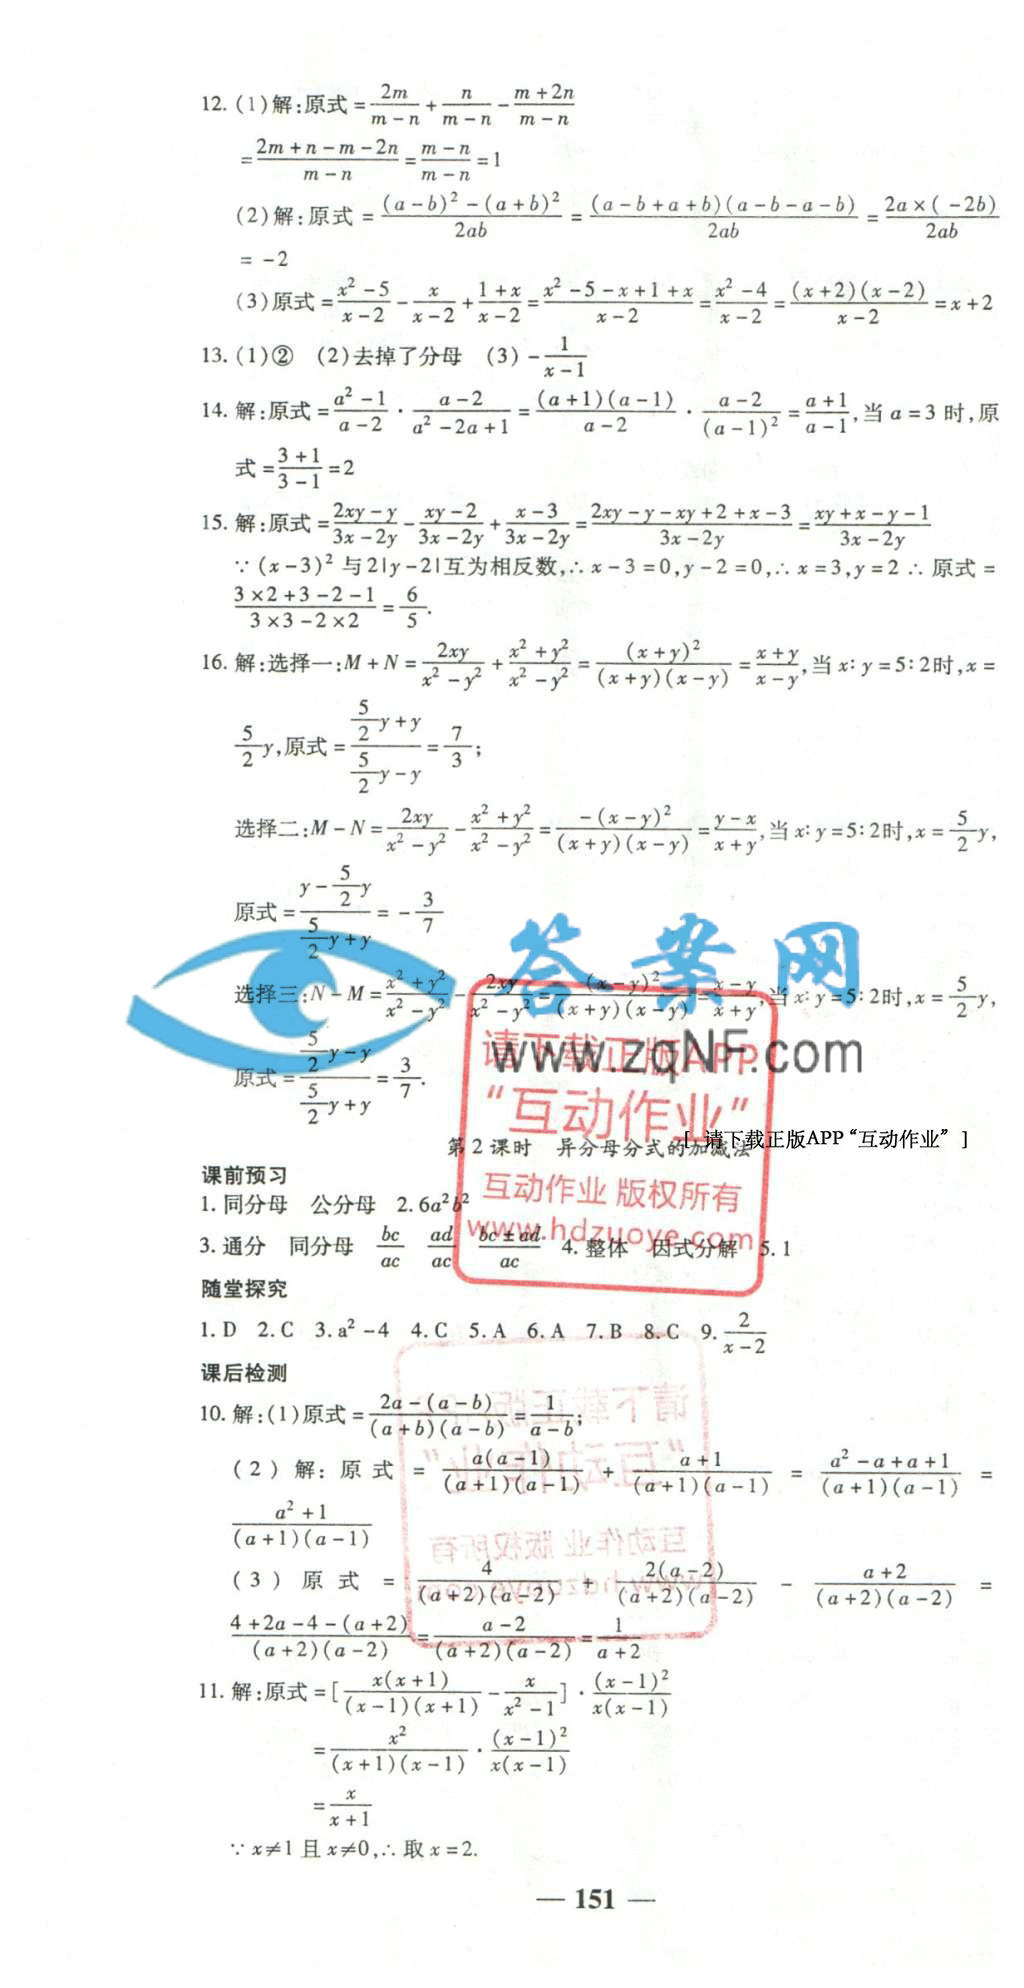 12. (1)解:原式=\frac{2m}{m-n}+\frac{n}{m-n}-\frac{m+2n}{m-n}
=\frac{2m+n-m-2n}{m-n}=\frac{m-n}{m-n}=1
(2)解:原式=\frac{(a-b)^2-(a+b)^2}{2ab}=\frac{(a-b+a+b)(a-b-a-b)}{2ab}=\frac{2a×(-2b)}{2ab}
=-2
(3)原式=\frac{x^2-5}{x-2}-\frac{x}{x-2}+\frac{1+x}{x-2}=\frac{x^2-5-x+1+x}{x-2}=\frac{x^2-4}{x-2}=\frac{(x+2)(x-2)}{x-2}=x+2
13. (1)② (2)去掉了分母 (3)-\frac{1}{x-1}
14. 解:原式=\frac{a^2-1}{a-2}·\frac{a-2}{a^2-2a+1}=\frac{(a+1)(a-1)}{a-2}·\frac{a-2}{(a-1)^2}=\frac{a+1}{a-1},当a=3时,原
式=\frac{3+1}{3-1}=2
15. 解:原式=\frac{2xy-y}{3x-2y}-\frac{xy-2}{3x-2y}+\frac{x-3}{3x-2y}=\frac{2xy-y-xy+2+x-3}{3x-2y}=\frac{xy+x-y-1}{3x-2y}
∵(x-3)^2与2|y-2|互为相反数,∴x-3=0,y-2=0,∴x=3,y=2∴原式=
\frac{3×2+3-2-1}{3×3-2×2}=\frac{6}{5}.
16. 解:选择一:M+N=\frac{2xy}{x^2-y^2}+\frac{x^2+y^2}{x^2-y^2}=\frac{(x+y)^2}{(x+y)(x-y)}=\frac{x+y}{x-y},当x∶y=5∶2时,x=
\frac{5}{2}y,原式=\frac{\frac{5}{2}y+y}{\frac{5}{2}y-y}=\frac{7}{3};
选择二:M-N=\frac{2xy}{x^2-y^2}-\frac{x^2+y^2}{x^2-y^2}=\frac{-(x-y)^2}{(x+y)(x-y)}=\frac{y-x}{x+y},当x∶y=5∶2时,x=\frac{5}{2}y,
原式=\frac{y-\frac{5}{2}y}{\frac{5}{2}y+y}=-\frac{3}{7}
答案网
选择三:N-M=\frac{x^2+y^2}{x^2-y^2}-\frac{2xy}{x^2-y^2}=\frac{(x-y)^2}{(x+y)(x-y)}=\frac{x-y}{x+y},当x∶y=5∶2时,x=\frac{5}{2}y,
原式=\frac{\frac{5}{2}y-y}{\frac{5}{2}y+y}=\frac{3}{7}.
请下载正版APP
www.zqNF.com
“互动作业”
[ 请下载正版APP“互动作业” ]
第2课时 异分母分式的加减法
课前预习
1. 同分母 公分母 2. 6a^2b^2
互动作业 版权所有
www.hdzuoye.com
3. 通分 同分母 \frac{bc}{ac} \frac{ad}{ac} \frac{bc±ad}{ac} 4. 整体 因式分解 5. 1
随堂探究
1. D 2. C 3. a^2-4 4. C 5. A 6. A 7. B 8. C 9. \frac{2}{x-2}
课后检测
10. 解:(1)原式=\frac{2a-(a-b)}{(a+b)(a-b)}=\frac{1}{a-b};
(2)解:原式=\frac{a(a-1)}{(a+1)(a-1)}+\frac{a+1}{(a+1)(a-1)}=\frac{a^2-a+a+1}{(a+1)(a-1)}=
\frac{a^2+1}{(a+1)(a-1)}
(3)原式=\frac{4}{(a+2)(a-2)}+\frac{2(a-2)}{(a+2)(a-2)}-\frac{a+2}{(a+2)(a-2)}=
\frac{4+2a-4-(a+2)}{(a+2)(a-2)}=\frac{a-2}{(a+2)(a-2)}=\frac{1}{a+2}
11. 解:原式=[\frac{x(x+1)}{(x-1)(x+1)}-\frac{x}{x^2-1}]·\frac{(x-1)^2}{x(x-1)}
=\frac{x^2}{(x+1)(x-1)}·\frac{(x-1)^2}{x(x-1)}
=\frac{x}{x+1}
∵x≠1且x≠0,∴取x=2.
— 151 —
请下载正版APP
“互动作业”
互动作业 版权所有
www.hdzuoye.com